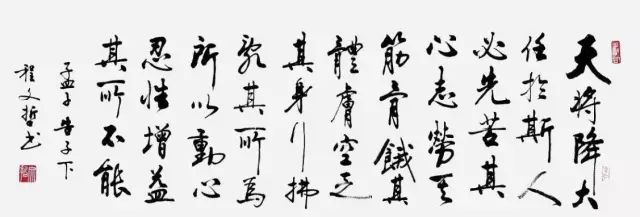 天将降大
任於斯人
必先苦其
心志勞其
筋骨餓其
體膚空乏
其身行拂
亂其所為
所以動心
忍性增益
其所不能
孟子告子下
程文哲书